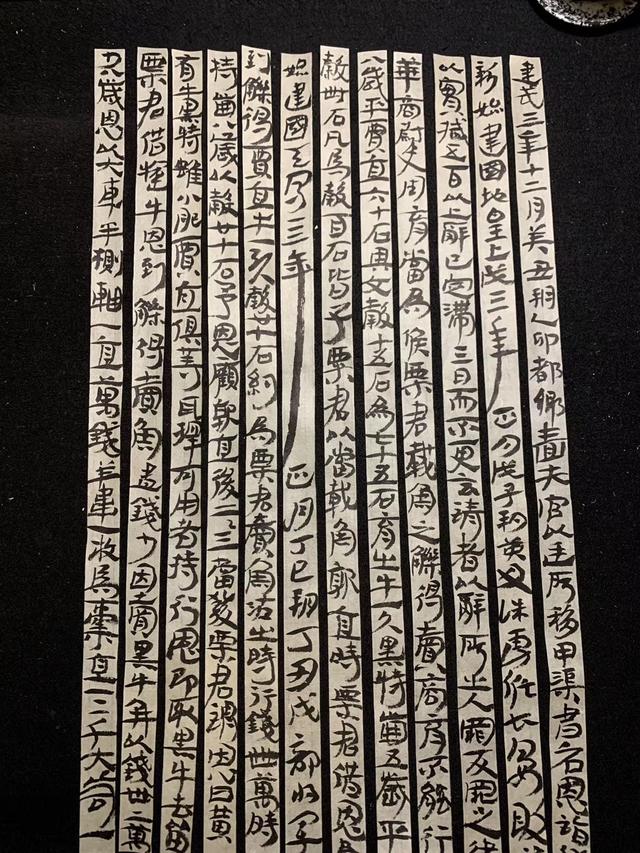 建武三年十二月癸丑朔乙卯都鄉嗇夫宮以廷所移甲渠書召恩詣
新始建國地皇上戊三年 正月戊子
以實臧五百以上辭已定滿三日而不更言請者以辭所出入罪反罪之律
華商尉史周育當為候粟君載魚之觻得賣商育不能行
八歲平賈直六十石與它穀十五石為七十五石育出牛一頭黑特齒五歲平
穀卌石凡為穀百石皆予粟君以當載魚就直時粟君借恩
始建國天鳳三年 正月丁巳朔丁丑戊部
到觻得賈直牛一頭穀廿十石約為粟君賣魚沽出時行錢卌萬時
特齒八歲以穀廿十石予恩顧就直後二三當發粟君謂恩曰黃
育牛黑特雖小肥賈直俱等耳擇可用者持行恩即取黑牛去留
粟君借牛恩到觻得賣魚盡錢少因賣黑牛并以錢卅二萬
八歲恩以大車半側軸一直萬錢羊韋一枚為橐直三千大笥一